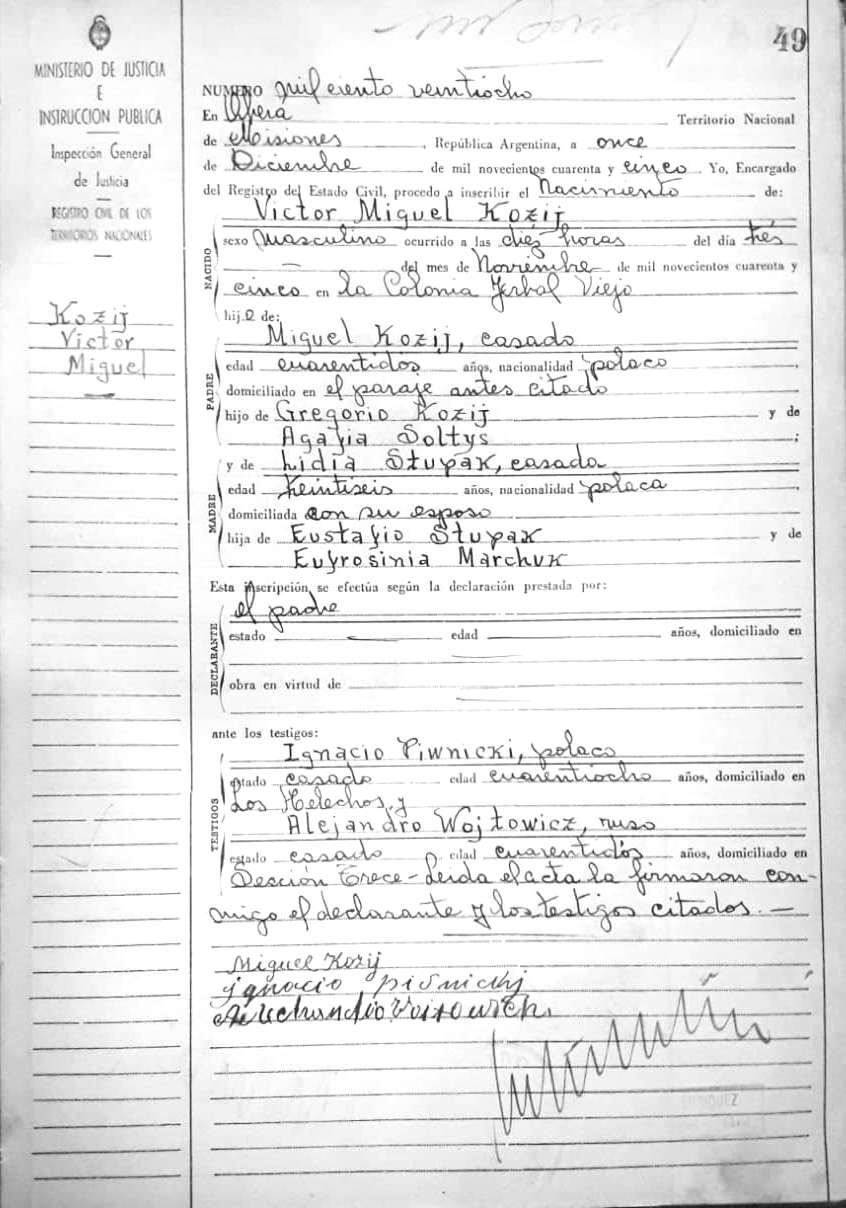 49
MINISTERIO DE JUSTICIA
E
INSTRUCCION PUBLICA
Inspección General
de Justicia
REGISTRO CIVIL DE LOS
TERRITORIOS NACIONALES
Kozij
Victor
Miguel
NUMERO mil ciento veintiocho
En Oberá Territorio Nacional
de Misiones, República Argentina, a once
de Diciembre de mil novecientos cuarenta y cinco. Yo, Encargado
del Registro del Estado Civil, procedo a inscribir el Nacimiento de:
Victor Miguel Kozij
NACIDO
sexo masculino ocurrido a las diez horas del día trés
— del mes de Noviembre de mil novecientos cuarenta y
cinco en la Colonia Yerbal Viejo
hijo de:
Miguel Kozij, casado
PADRE
edad cuarentidós años, nacionalidad polaco,
domiciliado en el paraje antes citado
hijo de Gregorio Kozij y de
Agafia Soltys;
y de Lidia Stupak, casada
MADRE
edad veintiseis años, nacionalidad polaca,
domiciliada con su esposo
hija de Eustafio Stupak y de
Eufrosinia Marchuk
Esta inscripción se efectúa según la declaración prestada por:
el padre
DECLARANTE
estado — edad años, domiciliado en
obra en virtud de
ante los testigos:
Ignacio Piwnicki, polaco
TESTIGOS
estado casado edad cuarentiocho años, domiciliado en
Los Helechos, y
Alejandro Wojtowicz, ruso
estado casado edad cuarentidós años, domiciliado en
Sección Trece - Leida el acta la firmaron con-
migo el declarante y los testigos citados. —
Miguel Kozij
ignacio